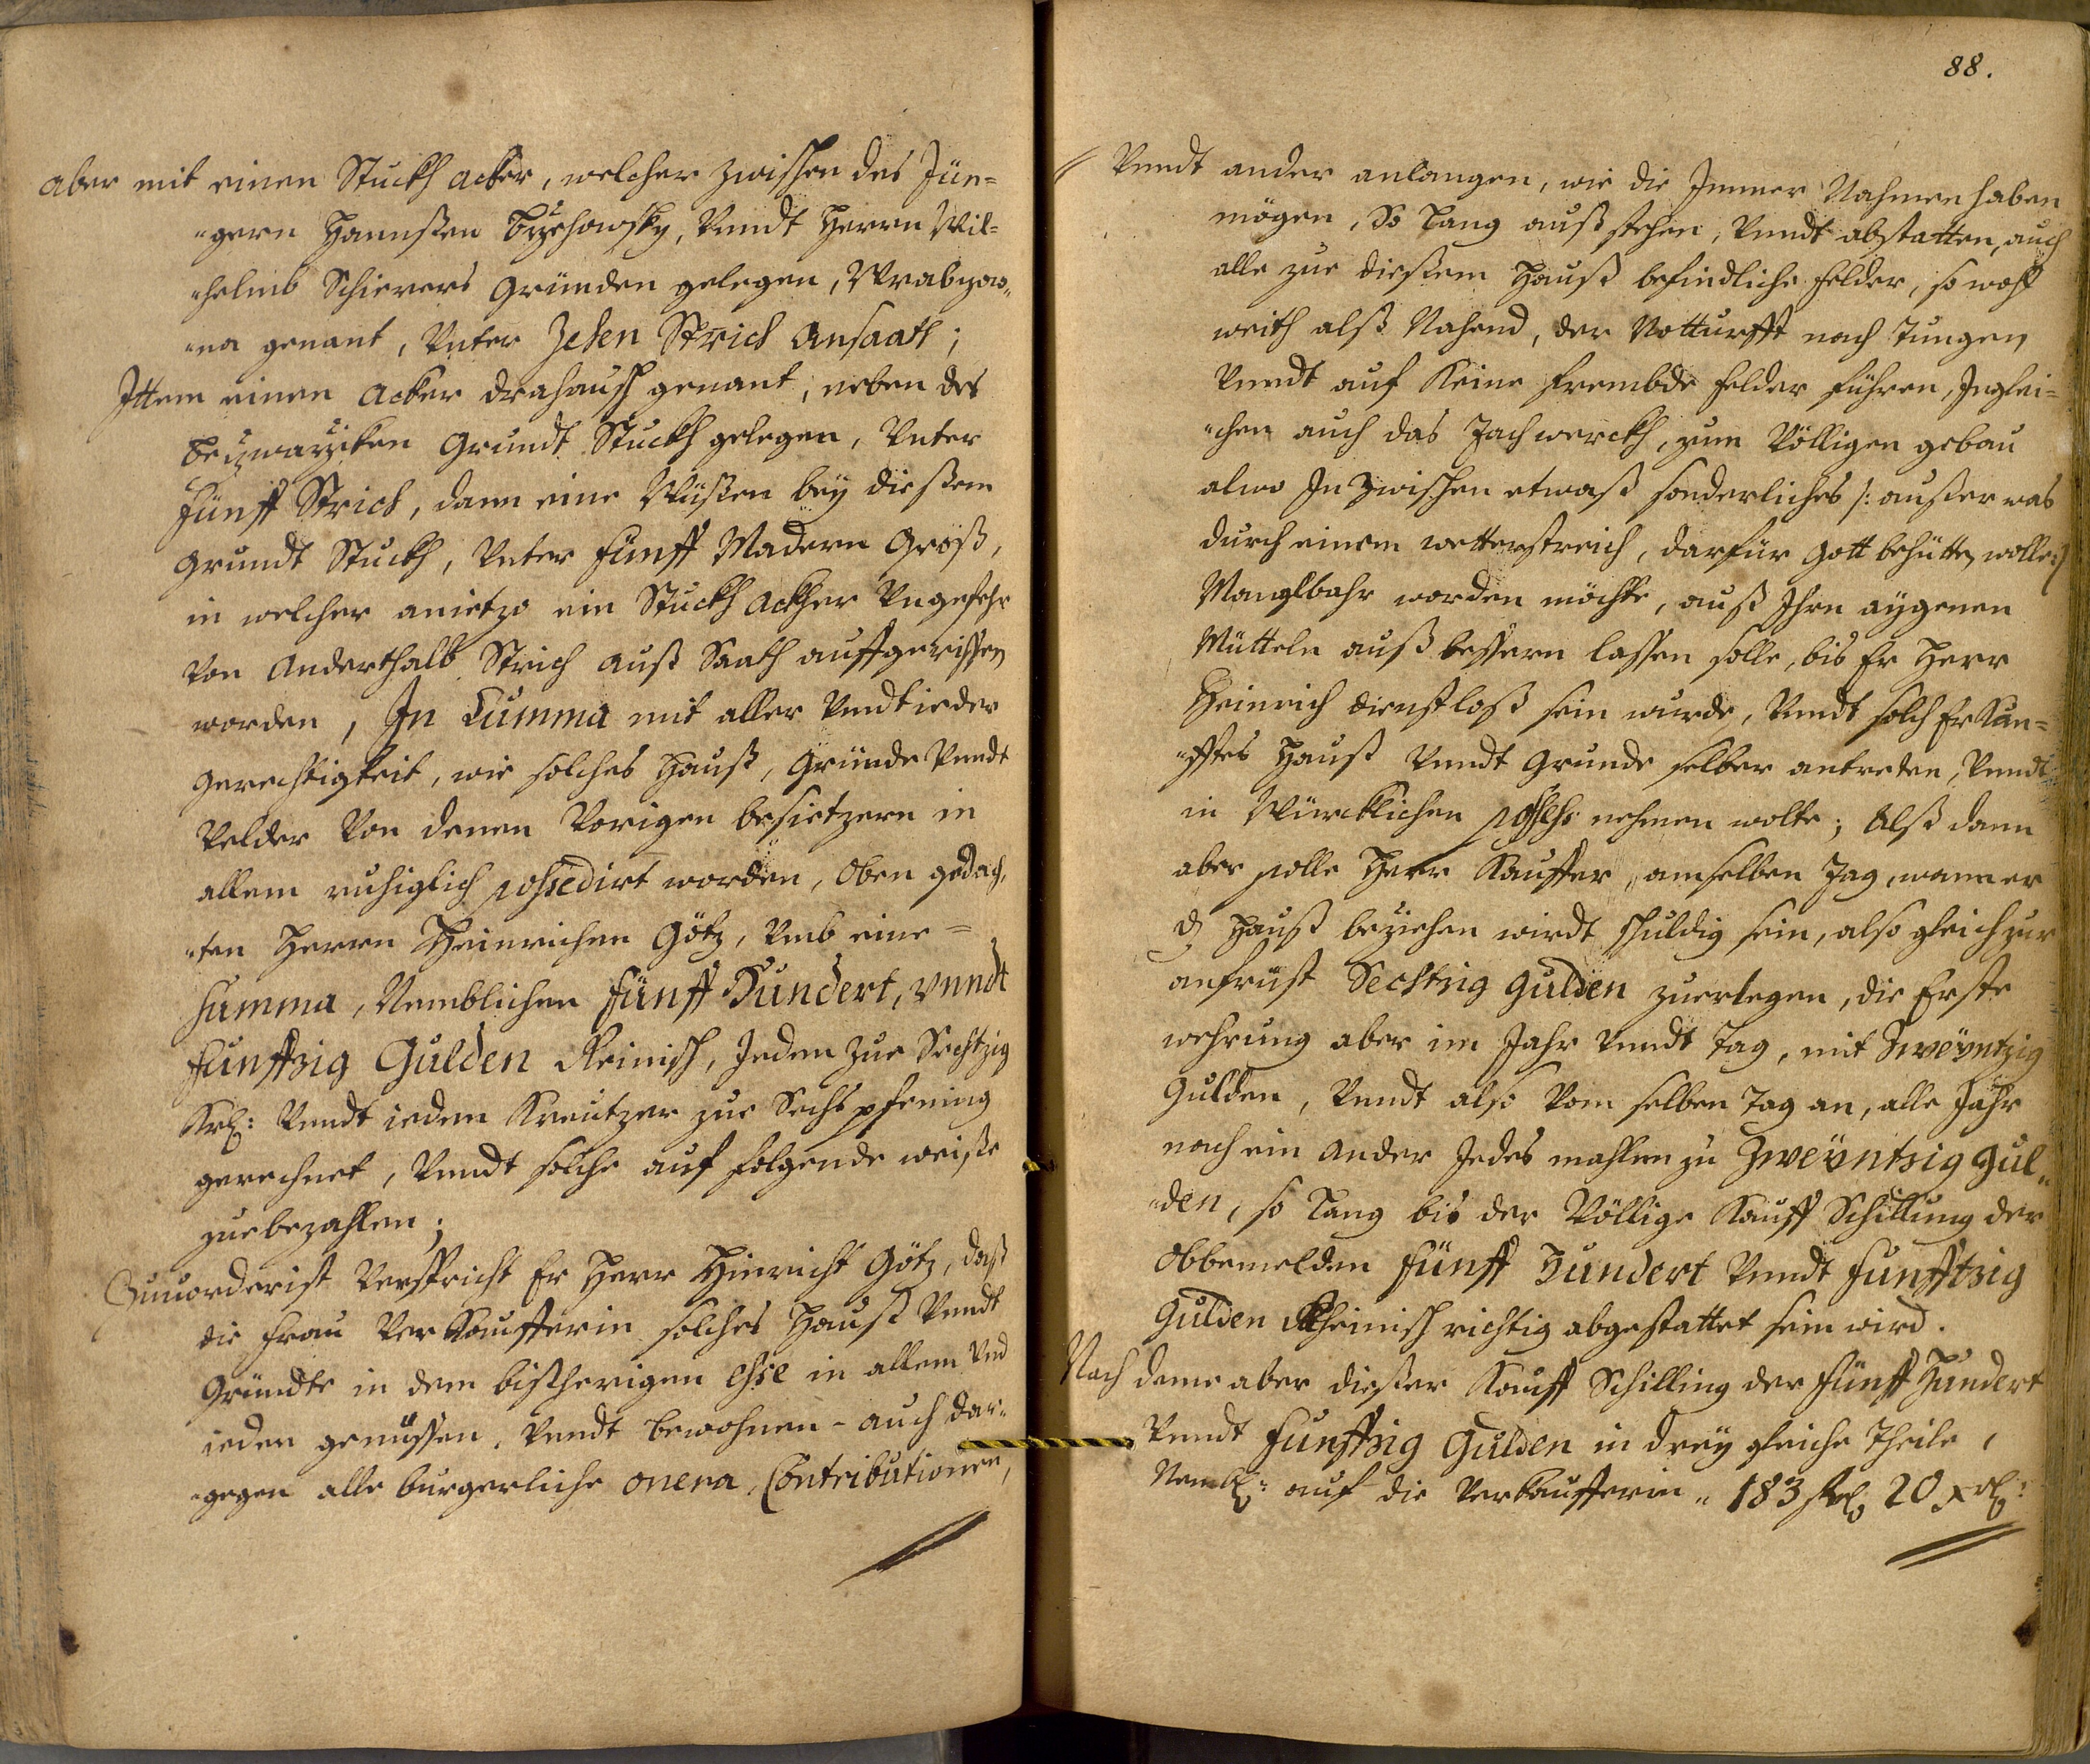 aber mit einen Stuckh acker, welcher zwischen des Jün=
=gern Hannßen , Vnndt Herrn Wil=
=helmb Schierers Gründen gelegen,
=na genant, Vnter Zehen Strich Ansaath;
Ittem einen Acker drahausch genant, neben des
Grundt Stuckh gelegen, Vnter
Fünff Strich, dann eine Wüßen bey dießem
Grundt Stuckh, Vnter Fünff Madern Groß,
in welcher anietzo ein Stuckh Ackher Vngefehr
Von Anderthalb Strich auß Saath auffgerissen
worden, In Summa mit aller Vndt ieder
Gerechtigkeit, wie solches Hauß, Gründe Vnndt
Velder Von denen Vorigen besietzern in
allem ruhiglich possedirt worden, Oben gedach=
=ten Herrn Heinrichen Götz, Vmb eine=
Summa, Nemblichen Fünff Hundert, Vnndt
Funffzig Gulden Reinisch, Jeden zue Sechtzig
Krl: Vnndt ieden Kreutzer zue Sechs pfening
gerechnet, Vnndt solche auf folgende weiße
zue bezahlen;
Zuuorderist Verspricht Er Herr Hinricht Götz, daß
die Frau Verkaufferin solches Hauß Vnndt
Gründte in dem bißherigen esse in allem Vnd
ieden genüssen, Vnndt bewohnen - auch dar=
=gegen alle burgerliche onera, Contributionen,
88.
Vnndt ander anlangen, wie die Jmmer Nahmen haben
mögen, So Lang auß stehen, Vnndt abstatten, auch
alle zue dießem Hauß befindliche Felder, so wohl
weith alß Nahend, der Notturfft nach Tungen
Vnndt auf Keine frembde Felder führen, Jnglei=
=chen auch das Tachwerckh, zum Völligen gebau
alwo In Zwischen etwaß sonderliches /: außer was
durch einem wetterstreich, darfür Gott behütten wolle :/
Manglbahr worden möchte, auß Ihren aygenen
Mütteln auß bessern lassen solle, bis Er Herr
Heinrich dienstloß sein wurde, Vnndt solch Erkau=
=fftes Hauß Vnndt Grunde selber antreten, Vnndt
in Würcklichen nehmen wolte; Alß dann
aber solle Herr Kauffer, am selben Tag, wann er
dz Hauß beziehen wirdt schuldig sein, also gleich zur
anfrist Sechtzig Gulden zuerlegen, die Erste
wehrung aber im Jahr Vnndt Tag, mit Zweyntzig
Gulden, Vnndt also Vom selben Tag an, alle Jahr
nach ein ander Jedes mahlen zu Zweyntzig Gul=
=den, so Lang bis der Völlige Kauff Schilling der
obbemelden Fünff Hundert Vnndt Funfftzig
Gulden Rheinisch richtig abgestattet sein wird.
Nach deme aber dießer Kauff Schilling der Fünff Hundert
Vnndt Funffzig Gulden in drey gleiche Theile,
Nembl: auf die Verkaufferin 183 fl 20 xrl: